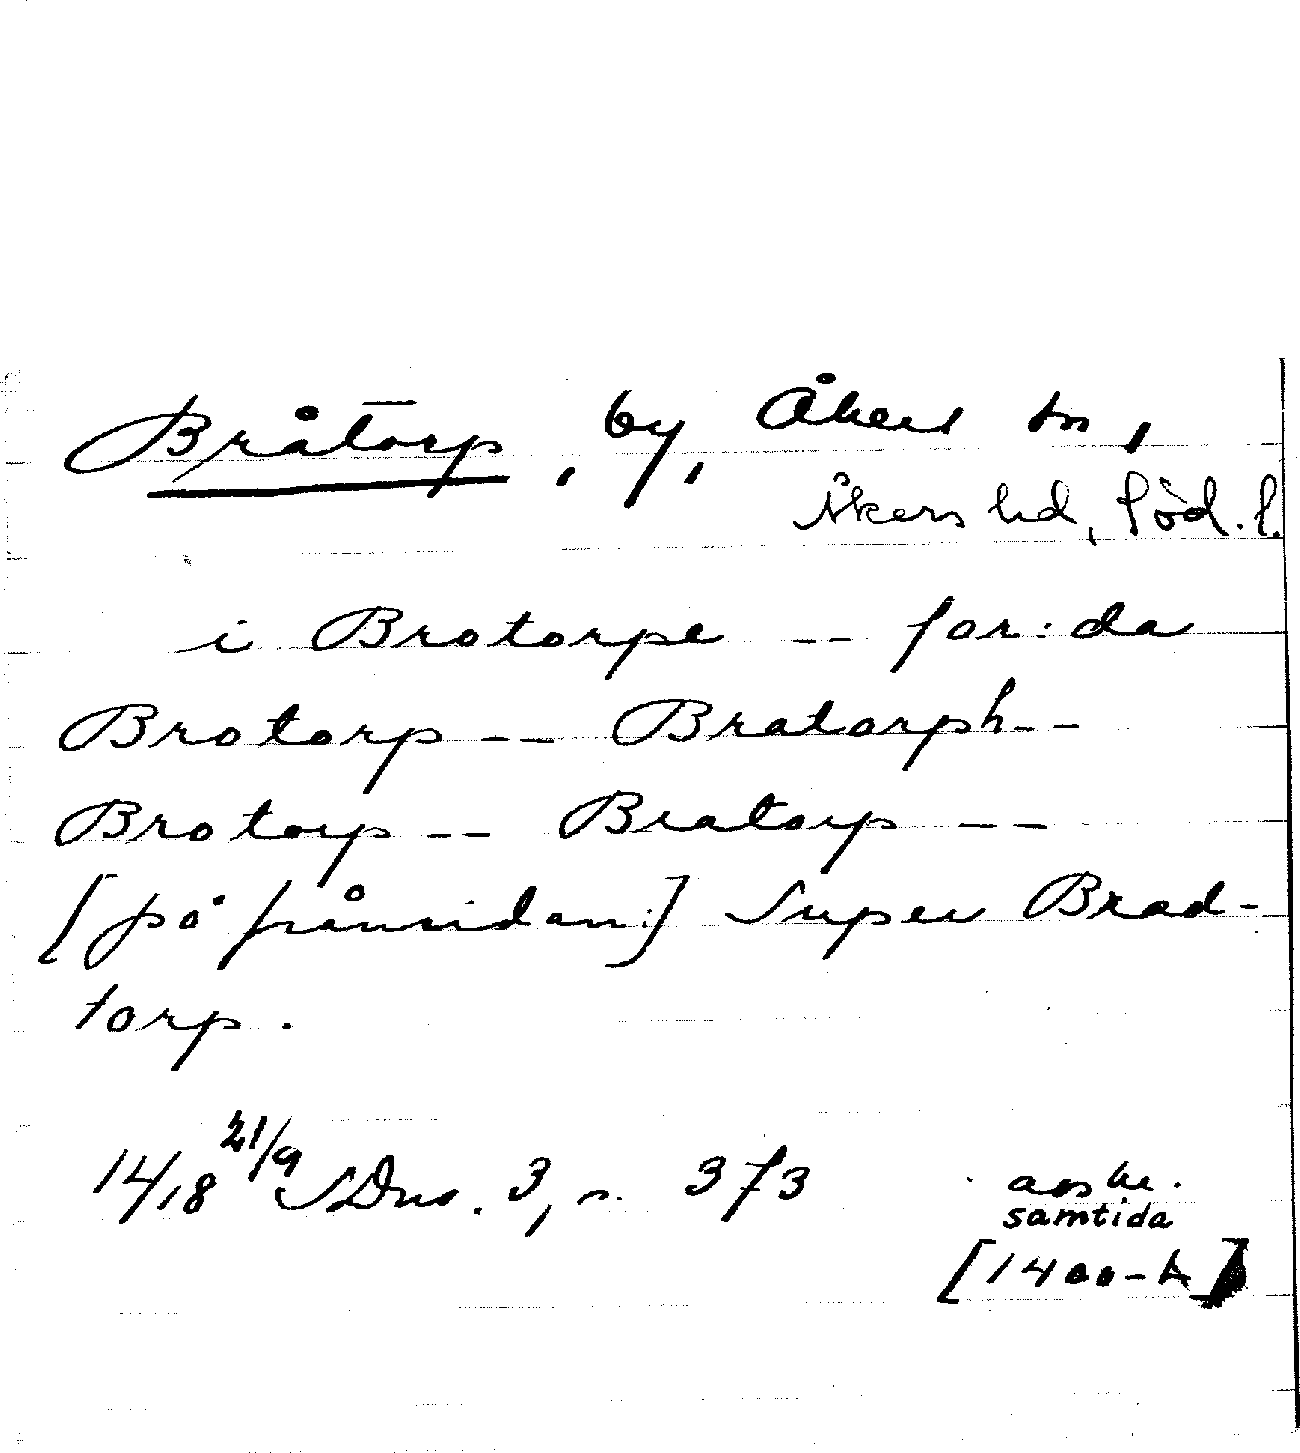 Bråtorp, by, Åkers sn,
Åkers hd, Söd. l.
i Brotorpe -- for:da
Brotorp -- Bratorph --
Brotorp -- Bratorp --
[på frånsidan:] Super Brad-
torp.
14/18 21/9 SDns. 3, s. 373
avskr.
samtida
[1400-t]